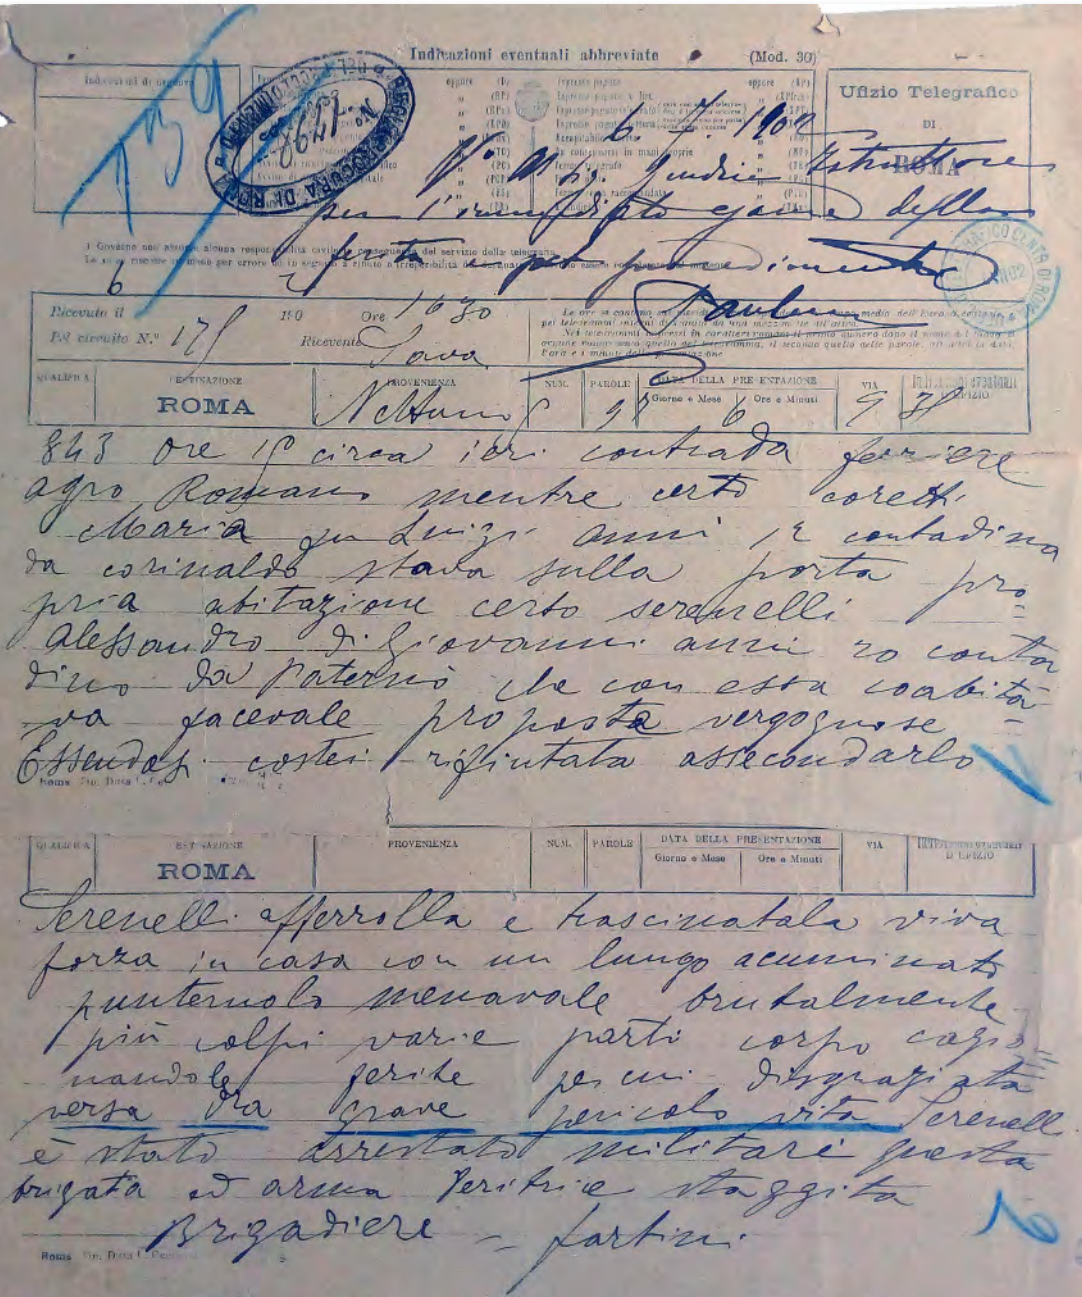 Indicazioni eventuali abbreviate
(Mod. 30)
739
Ufizio Telegrafico
DI
ROMA
6. 7. 1902
Giudice Istruttore
per l'immediato esame della
ferita e pel procedimento
Il Governo non assume alcuna responsabilità civile in conseguenza del servizio della telegrafia.
6
Ricevuto il 190 Ore 16 30
Pel circuito N.º 175 Ricevente Sava
QUALIFICA DESTINAZIONE PROVENIENZA NUM. PAROLE DATA DELLA PRESENTAZIONE VIA
Giorno e Mese Ore e Minuti
ROMA Nettuno 98 6 9 35
843 ore 15 circa ieri contrada ferriere
agro Romano mentre certo coretti
Maria fu Luigi anni 12 contadina
da corinaldo stava sulla porta pro=
pria abitazione certo serenelli
Alessandro di Giovanni anni 20 conta
dino da Paternò che con essa coabita=
va facevale proposta vergognose
Essendosi costei rifiutata assecondarlo
QUALIFICA DESTINAZIONE PROVENIENZA NUM. PAROLE DATA DELLA PRESENTAZIONE VIA
Giorno e Mese Ore e Minuti
ROMA
Serenelli afferrolla e trascinatala viva
forza in casa con un lungo acuminato
punteruolo menavale brutalmente
più colpi varie parti corpo cagio=
nandole ferite per cui disgraziata
versa ora grave pericolo vita Serenelli
è stato arrestato militari questa
brigata ed arma feritrice staggita
Brigadiere = fortini
Roma